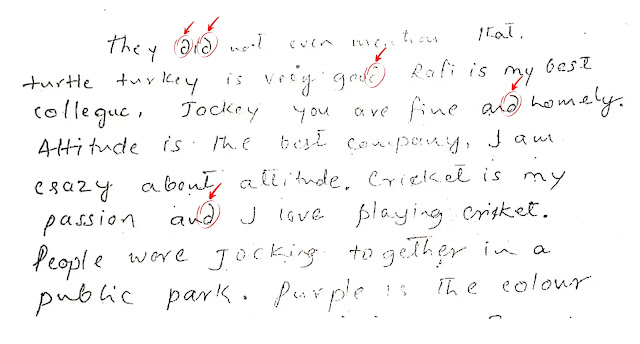 They did not even mention that.
turtle turkey is very good Rafi is my best
collegue, Jockey you are fine and homely.
Attitude is the best company, I am
crazy about attitude. Cricket is my
passion and I love playing cricket.
People were Jocking together in a
public park. Purple is the colour